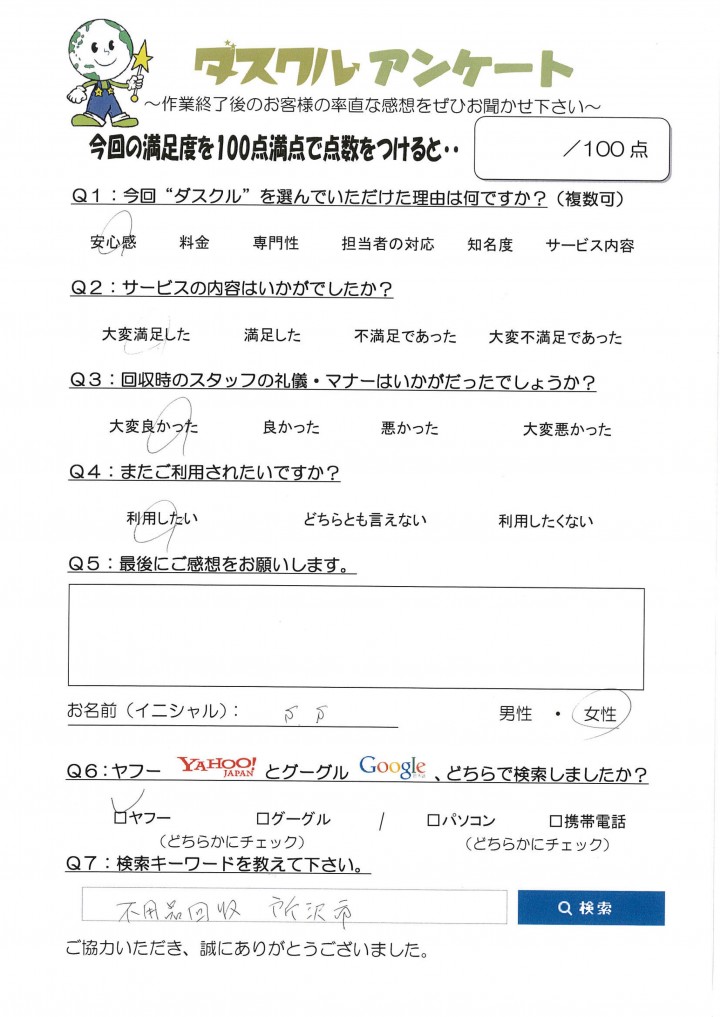 ダスクル アンケート
～作業終了後のお客様の率直な感想をぜひお聞かせ下さい～
今回の満足度を100点満点で点数をつけると‥
／100 点
Q1：今回“ダスクル”を選んでいただけた理由は何ですか？（複数可）
安心感 料金 専門性 担当者の対応 知名度 サービス内容
Q2：サービスの内容はいかがでしたか？
大変満足した 満足した 不満足であった 大変不満足であった
Q3：回収時のスタッフの礼儀・マナーはいかがだったでしょうか？
大変良かった 良かった 悪かった 大変悪かった
Q4：またご利用されたいですか？
利用したい どちらとも言えない 利用したくない
Q5：最後にご感想をお願いします。
お名前（イニシャル）： 男性 ・ 女性
Q6：ヤフー YAHOO! JAPAN とグーグル Google 、どちらで検索しましたか？
□ヤフー □グーグル / □パソコン □携帯電話
（どちらかにチェック） （どちらかにチェック）
Q7：検索キーワードを教えて下さい。
不用品回収 所沢市
検索
ご協力いただき、誠にありがとうございました。